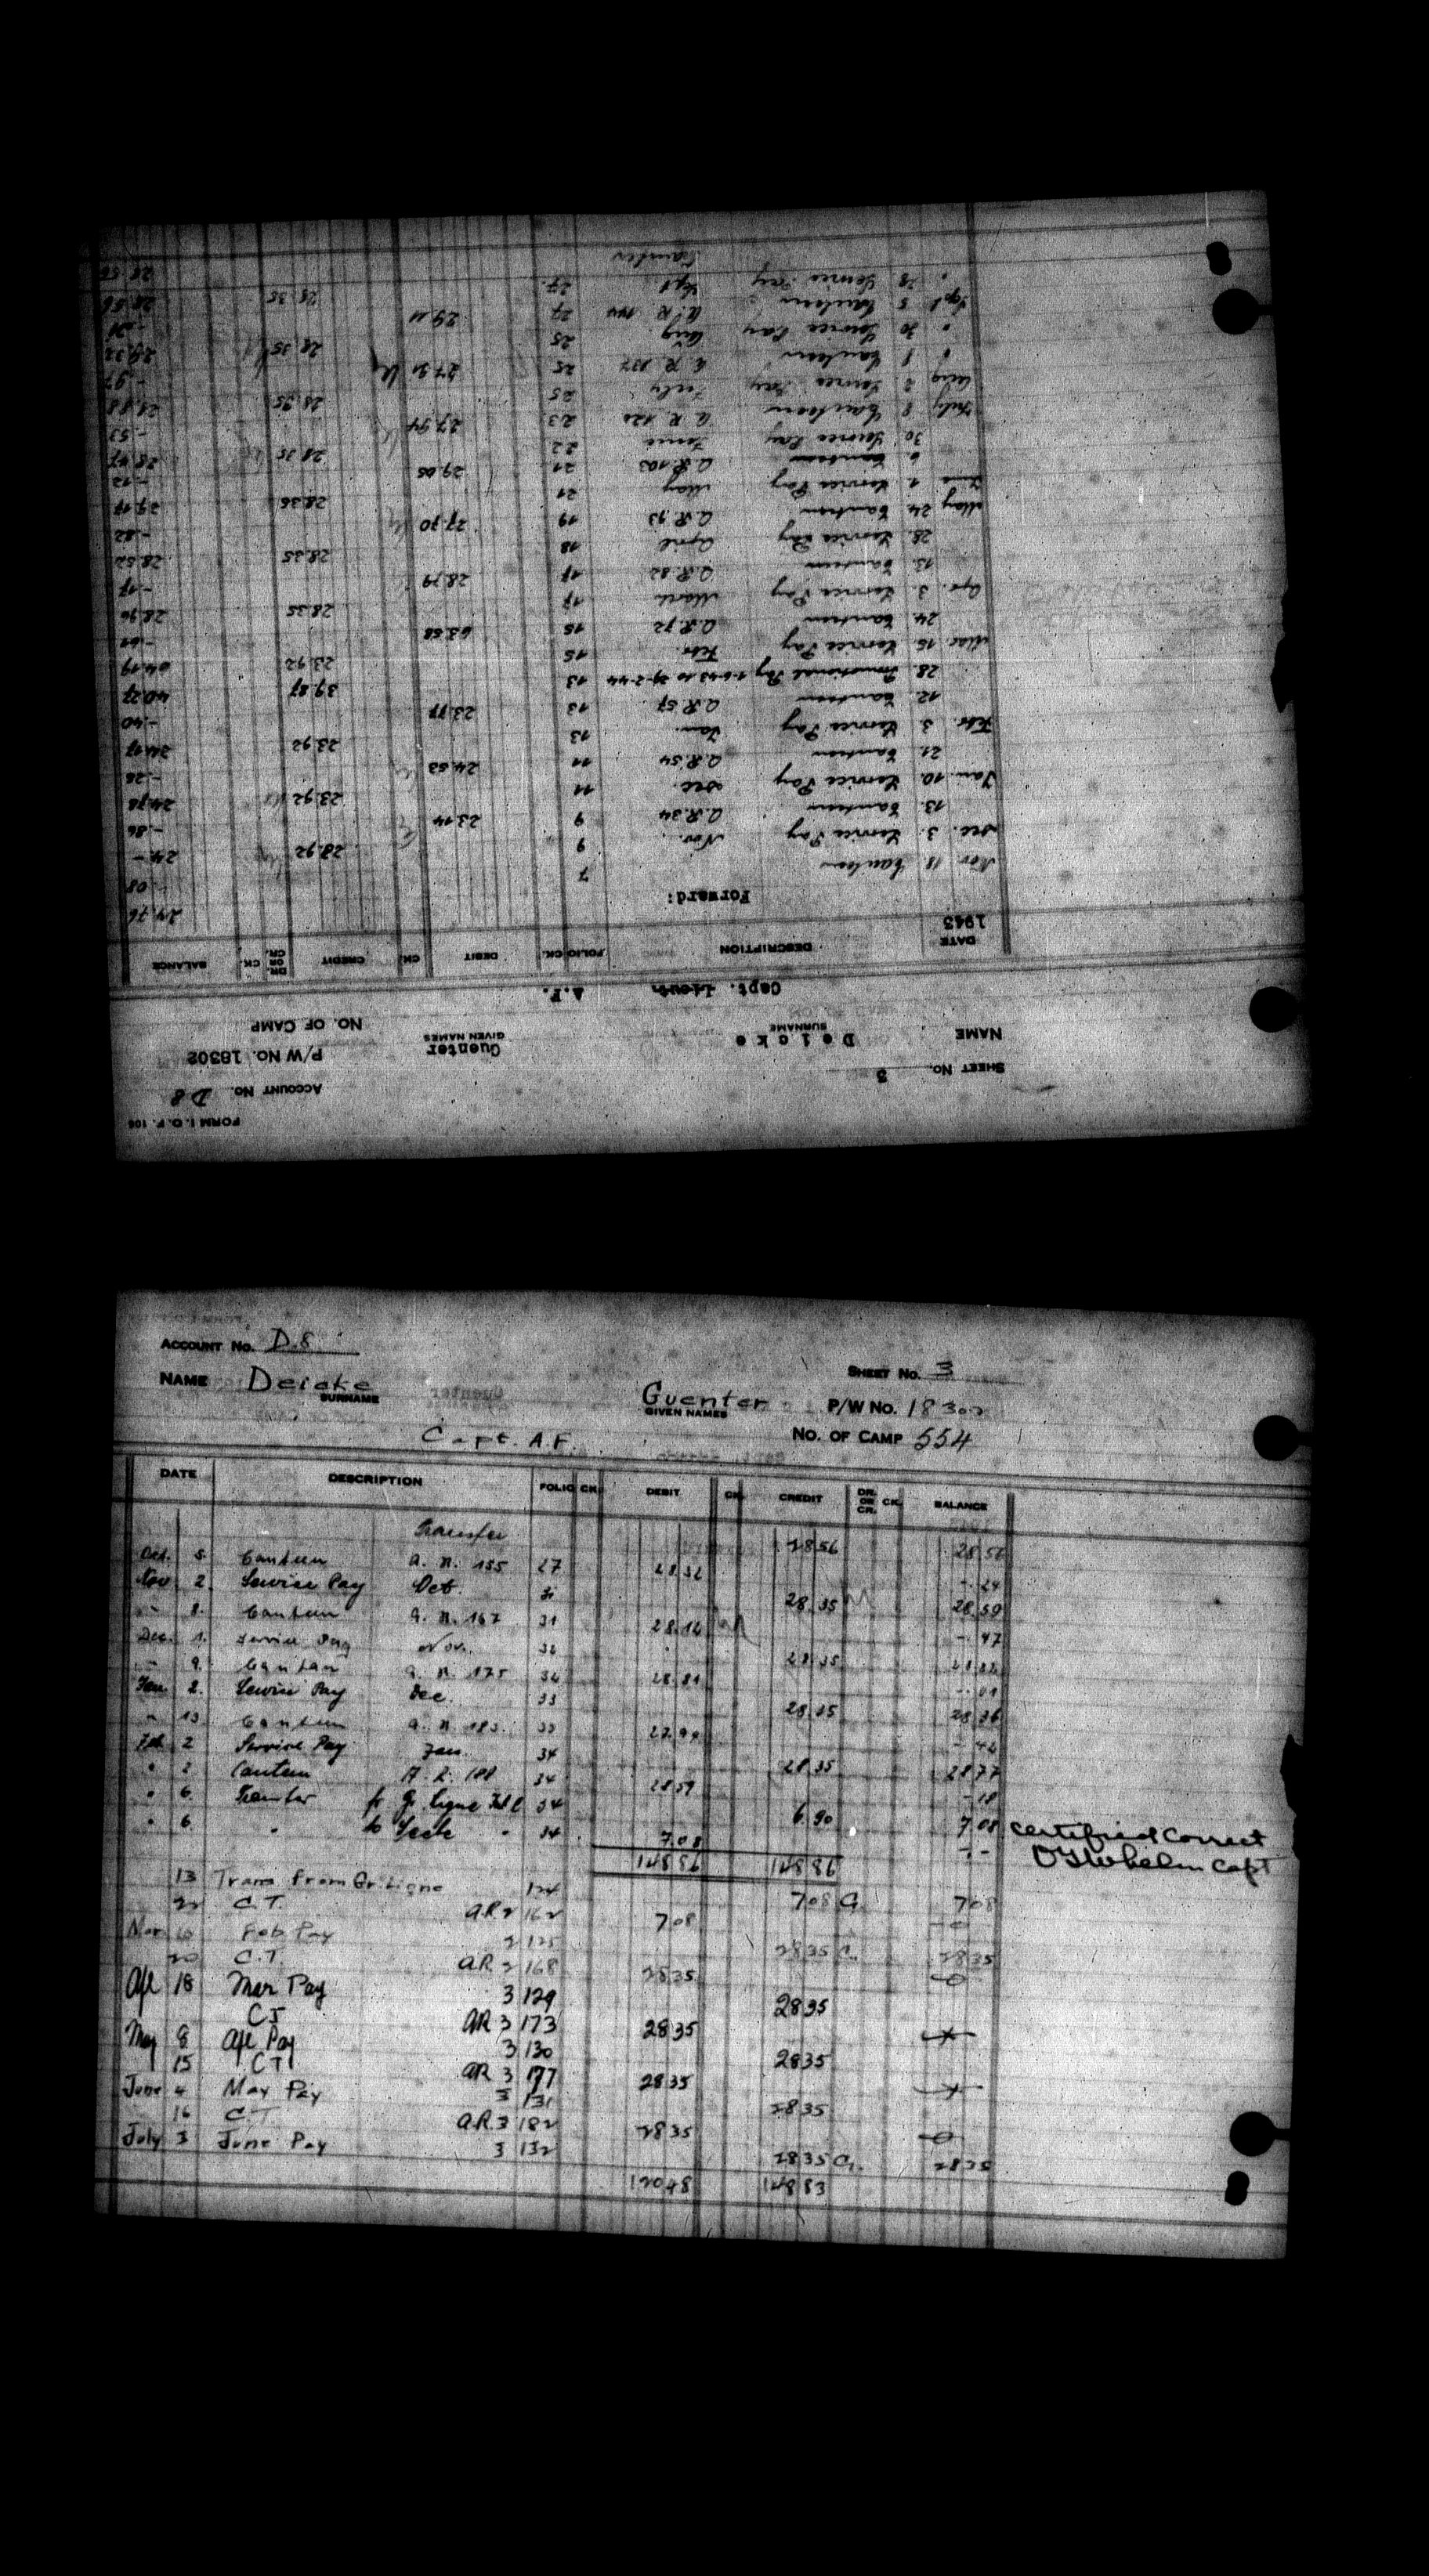 FORM I.O.F. 106
ACCOUNT NO. D 8
SHEET NO. 3
P/W NO. 18302
NAME Deicke Guenter
SURNAME GIVEN NAMES
NO. OF CAMP
Capt. Lieut. A.F.
DATE DESCRIPTION FOLIO CK. DEBIT CK. CREDIT DR. OR CR. CK. BALANCE
1943 Forward: 24.76
Nov 18. Canteen 7 -.08
Dec. 3. Service Pay Nov. 9 23.92 24.-
13. Canteen A.R.34 9 23.14 -.86
Jan. 10. Service Pay Dec. 11 23.92 24.78
21. Canteen A.R.54 11 24.53 -.25
Febr. 3. Service Pay Jan. 13 23.92 24.17
12. Canteen A.R.57 13 23.77 -.40
28. Pay 1-6-43 to 29-2-44 13 39.87 40.27
Mar 15. Service Pay Febr. 15 23.92 64.19
24. Canteen A.R.72 15 63.58 -.61
Apr. 3. Service Pay March 17 28.35 28.96
13. Canteen A.R.82 17 28.79 -.17
28. Service Pay April 18 28.35 28.52
May 24. Canteen A.R.93 19 27.70 -.82
June 1. Service Pay May 21 28.35 29.17
6. Canteen A.R.103 21 29.05 -.12
30. Service Pay June 22 28.35 28.47
July 8 Canteen A.R.120 23 27.94 -.53
Aug 2 Service Pay July 25 28.35 28.88
" 1 Canteen A.R.137 25 27.91 -.97
" 30 Service Pay Aug. 25 28.35 29.32
Sept 5 Canteen A.R.144 27 29.11 -.21
" 28 Service Pay Sept 27. 28.35 28.56
Transfer 28.56
ACCOUNT NO. D.8
SHEET NO. 3
NAME Deicke Guenter P/W NO. 18302
SURNAME GIVEN NAMES
Capt. A.F. NO. OF CAMP 554
DATE DESCRIPTION FOLIO CK. DEBIT CK. CREDIT DR. OR CR. CK. BALANCE
Transfer 28.56 28.56
Oct. 5. Canteen A.R. 155 27 28.32 -.24
Nov 2. Service Pay Oct. 31 28.35 28.59
" 8. Canteen A.R. 167 31 28.12 -.47
Dec. 1. Service Pay Nov. 32 28.35 28.82
" 9. Canteen A.R. 175 32 28.81 -.01
Jan. 2. Service Pay Dec. 33 28.35 28.36
" 13. Canteen A.R. 183. 33 27.94 -.42
Feb. 2 Service Pay Jan. 34 28.35 28.77
" 2 Canteen A.R. 188 34 28.59 -.18
" 6. Transfer fr Gr. Ligne 34 6.90 7.08
" 6. " to " 34 7.08 -.-
148.86 148.86
certified correct
Capt
13 Trans from Gr. Ligne 124 7.08 C. 7.08
22 C.T. A.R. 2 162 7.08 -0-
Mar 10 Feb Pay 2 125 28.35 C. 28.35
20 C.T. A.R. 2 168 28.35 -0-
Apl 18 Mar Pay 3 129 28.35
CT AR 3 173 28.35
May 8 Apl Pay 3 130 28.35
15 CT AR 3 177 28.35
June 4 May Pay 3 131 28.35
16 C.T. A.R. 3 182 28.35 -0-
July 3 June Pay 3 132 28.35 C. 28.35
120.48 148.83